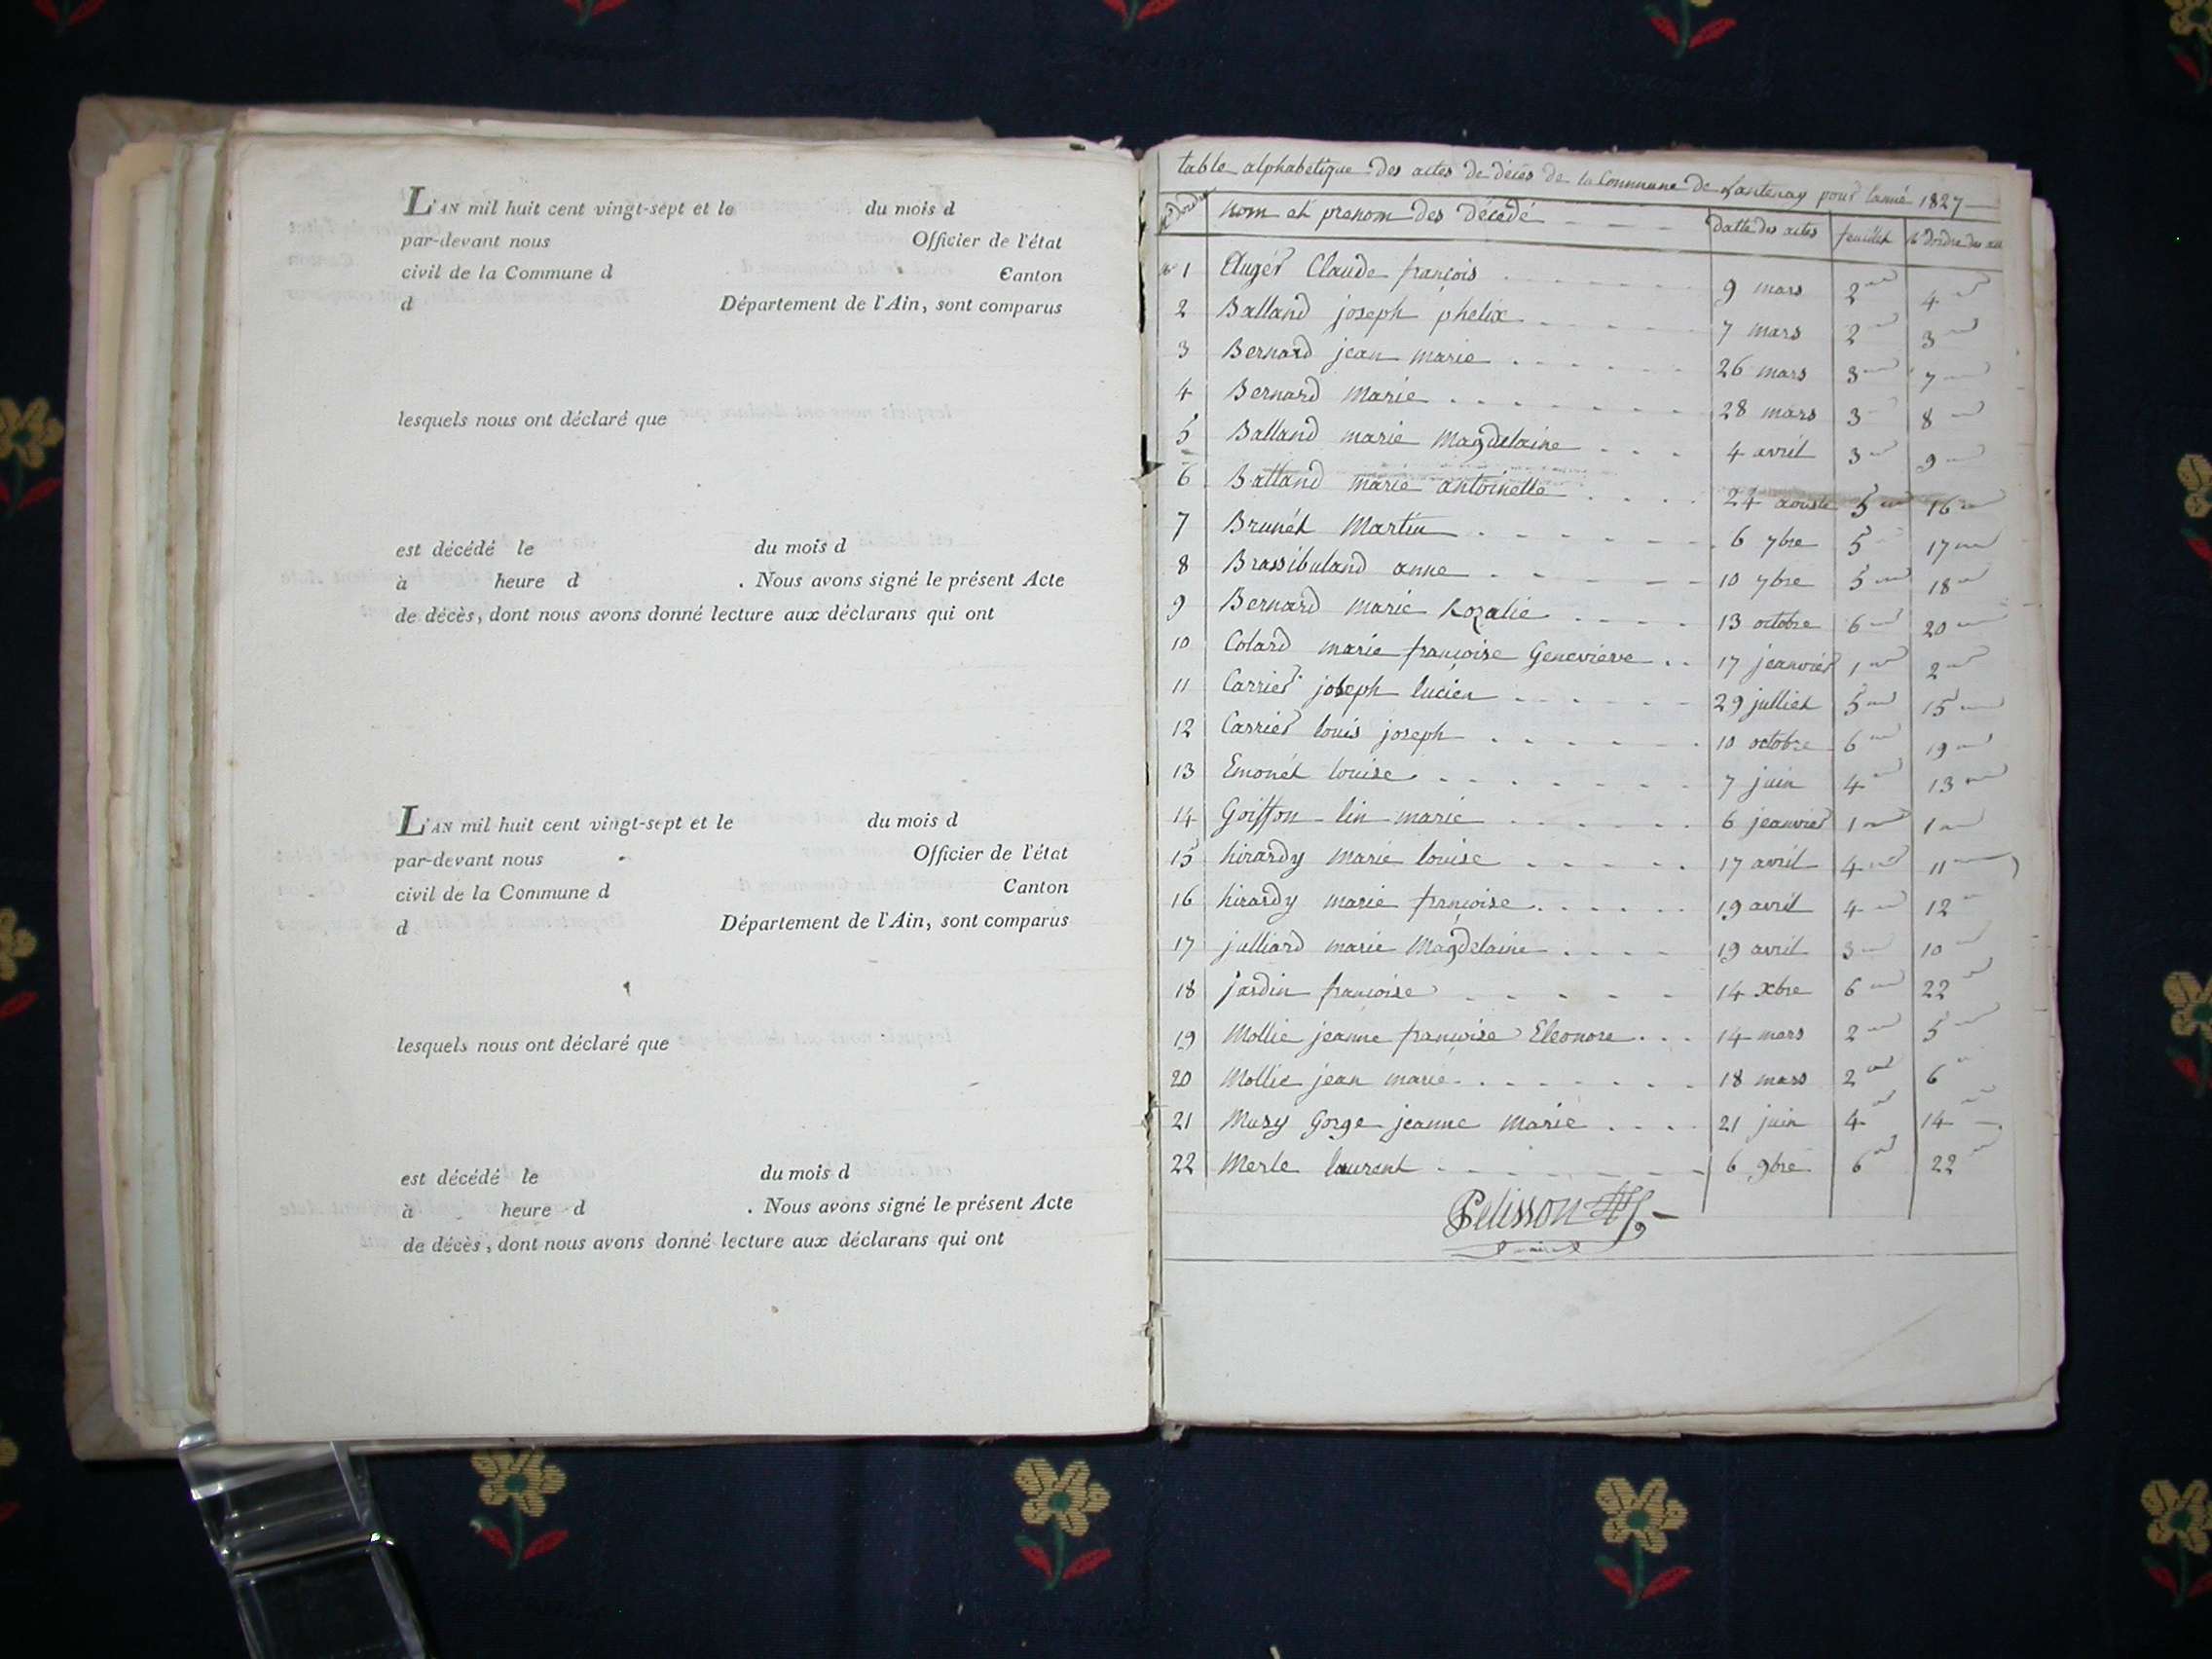 L'AN mil huit cent vingt-sept et le du mois d
par-devant nous Officier de l'état
civil de la Commune d Canton
d Département de l'Ain, sont comparus
lesquels nous ont déclaré que
est décédé le du mois d
à heure d . Nous avons signé le présent Acte
de décès, dont nous avons donné lecture aux déclarans qui ont
L'AN mil huit cent vingt-sept et le du mois d
par-devant nous Officier de l'état
civil de la Commune d Canton
d Département de l'Ain, sont comparus
lesquels nous ont déclaré que
est décédé le du mois d
à heure d . Nous avons signé le présent Acte
de décès, dont nous avons donné lecture aux déclarans qui ont
table alphabetique des actes de décés de la Commune de Lantenay pour lanné 1827
nom et prenom des décedé datte des actes feuillet
1 Augér Claude françois 9 mars 2 4
2 Balland joseph phelix 7 mars 2 3
3 Bernard jean marie 26 mars 3 7
4 Bernard marie 28 mars 3 8
5 Balland marie Magdelaine 4 avril 3 9
6 Balland marie antoinette 24 aouste 5 16
7 Brunét Martin 6 7bre 5 17
8 Brassibuland anne 10 7bre 5 18
9 Bernard marie Rozalie 13 octobre 6 20
10 Colard marie françoise Genevieve 17 jeanvier 1 2
11 Carrier joseph lucien 29 julliet 5 15
12 Carrier louis joseph 10 octobre 6 19
13 Emonét louise 7 juin 4 13
14 Goiffon lin marie 6 jeanvier 1 1
15 hirardy marie louise 17 avril 4 11
16 hirardy marie françoise 19 avril 4 12
17 julliard marie Magdelaine 19 avril 3 10
18 jardin françoise 14 xbre 6 22
19 Mollie jeanne françoise Eleonore 14 mars 2 5
20 Mollie jean marie 18 mars 2 6
21 Musy Gorge jeanne Marie 21 juin 4 14
22 Merle laurent 6 9bre 6 22
Pelisson